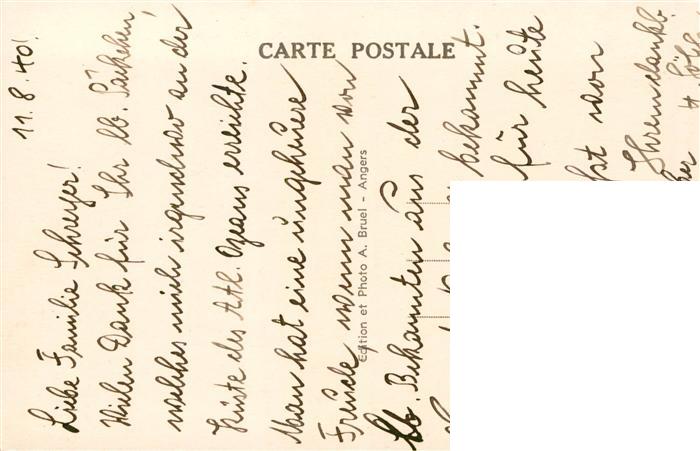 CARTE POSTALE
Edition et Photo A. Bruel – Angers
11.8.40!
Liebe Familie Schreyer!
Vielen Dank für Ihr lb. Päckchen,
welches mich irgendwo an der
Küste des Atl. Ozeans erreichte.
Man hat eine ungeheuere
Freude, wenn man von
lb. Bekannten aus der
bekannt.
für heute
von
Ihrem dankb.